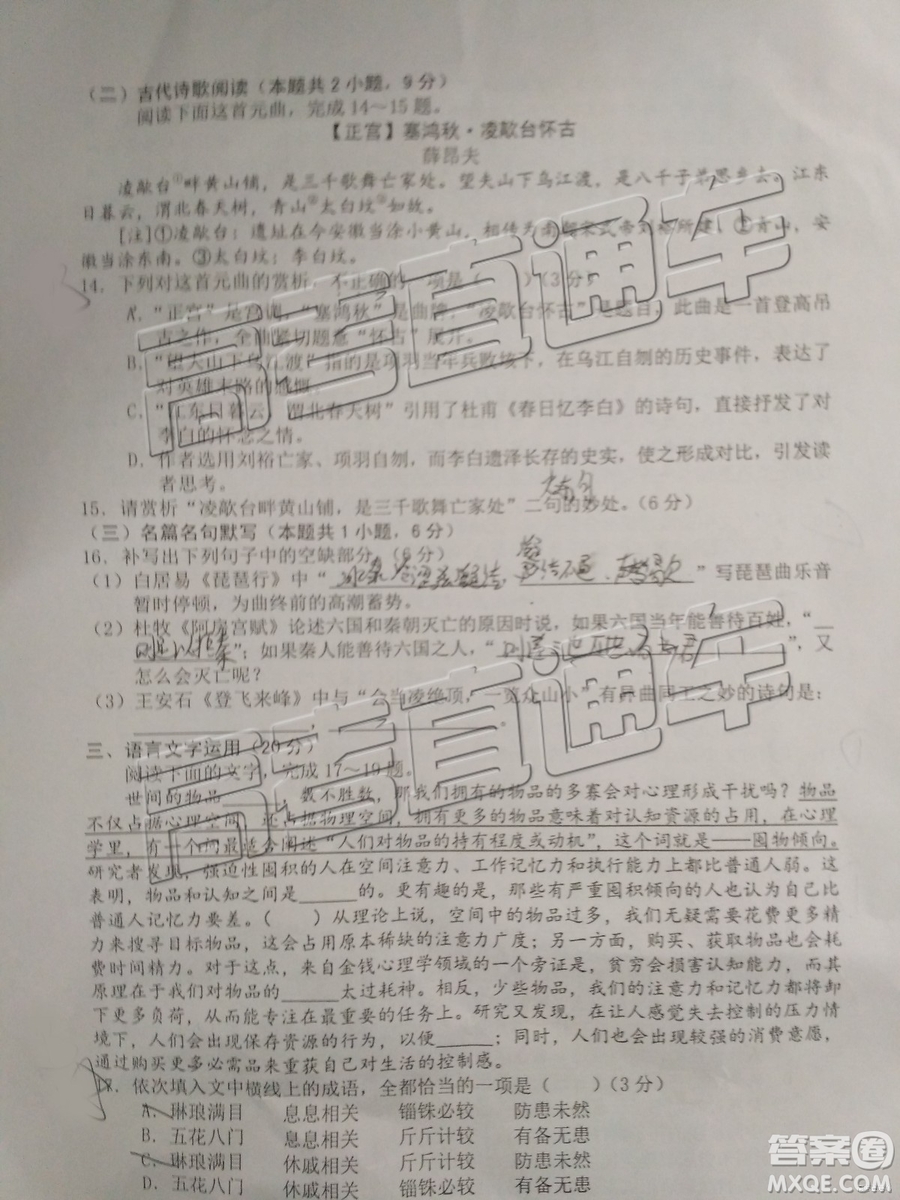 （二）古代诗歌阅读（本题共2小题，9分）
阅读下面这首元曲，完成14～15题。
【正宫】塞鸿秋·凌歊台怀古
薛昂夫
凌歊台①畔黄山铺，是三千歌舞亡家处。望夫山下乌江渡，是八千子弟思乡去。江东
日暮云，渭北春天树，青山②太白坟③如故。
[注]①凌歊台：遗址在今安徽当涂小黄山，相传为南朝宋武帝刘裕所建。②青山，安
徽当涂东南。③太白坟：李白坟。
14．下列对这首元曲的赏析，不正确的一项是（　　）（3分）
A．“正宫”是宫调，“塞鸿秋”是曲牌，“凌歊台怀古”是题目，此曲是一首登高吊
古之作，全曲紧切题意“怀古”展开。
B．“望夫山下乌江渡”指的是项羽当年兵败垓下，在乌江自刎的历史事件，表达了
对英雄末路的感慨。
C．“江东日暮云，渭北春天树”引用了杜甫《春日忆李白》的诗句，直接抒发了对
李白的怀念之情。
D．作者选用刘裕亡家、项羽自刎，而李白遗泽长存的史实，使之形成对比，引发读
者思考。
15．请赏析“凌歊台畔黄山铺，是三千歌舞亡家处”二句的妙处。（6分）
（三）名篇名句默写（本题共1小题，6分）
16．补写出下列句子中的空缺部分。（6分）
（1）白居易《琵琶行》中“　　　　”写琵琶曲乐音
暂时停顿，为曲终前的高潮蓄势。
（2）杜牧《阿房宫赋》论述六国和秦朝灭亡的原因时说，如果六国当年能善待百姓，“
”；如果秦人能善待六国之人，“　　　　”，又
怎么会灭亡呢？
（3）王安石《登飞来峰》中与“会当凌绝顶，一览众山小”有异曲同工之妙的诗句是：
三、语言文字运用（20分）
阅读下面的文字，完成17～19题。
世间的物品______、数不胜数，那我们拥有的物品的多寡会对心理形成干扰吗？物品
不仅占据心理空间，还占据物理空间，拥有更多的物品意味着对认知资源的占用，在心理
学里，有一个词最能含阐述“人们对物品的持有程度或动机”，这个词就是——囤物倾向。
研究者发现，强迫性囤积的人在空间注意力、工作记忆力和执行能力上都比普通人弱。这
表明，物品和认知之间是______的。更有趣的是，那些有严重囤积倾向的人也被认为比
普通人记忆力要差。（　　）从理论上说，空间中的物品过多，我们无疑需要花费更多精
力来搜寻目标物品，这会占用原本稀缺的注意力广度；另一方面，购买、获取物品也会耗
费时间精力。对于这点，来自金钱心理学领域的一个旁证是，贫穷会损害认知功能，而其
原理在于我们对物品的______太过耗神。相反，少些物品，我们的注意力和记忆力都将卸
下更多负荷，从而能专注在最重要的任务上。研究又发现，在让人感觉失去控制的压力情
境下，人们会出现保存资源的行为，以便______；同时，人们也会出现较强的消费意愿，
通过购买更多必需品来重获自己对生活的控制感。
17．依次填入文中横线上的成语，全都恰当的一项是（　　）（3分）
A．琳琅满目　息息相关　锱铢必较　防患未然
B．五花八门　息息相关　斤斤计较　有备无患
C．琳琅满目　休戚相关　锱铢必较　有备无患
D．五花八门　休戚相关　斤斤计较　防患未然
高考直通车
高考直通车
答案圈
MXQE.COM